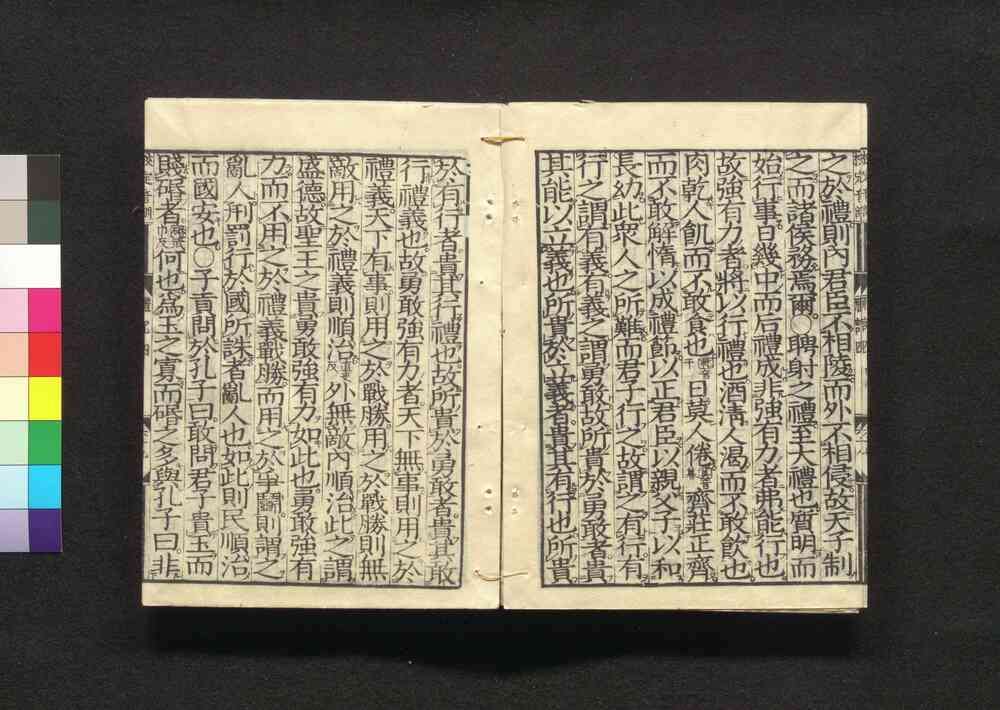 之於禮則內君臣不相陵而外不相侵故天子制
之而諸侯務焉爾○聘射之禮至大禮也質明而
始行事日幾中而后禮成非強有力者弗能行也
故強有力者將以行禮也酒清人渴而不敢飲也
肉乾人飢而不敢食也日莫人倦齊莊正齊
而不敢解惰以成禮節以正君臣以親父子以和
長幼此衆人之所難而君子行之故謂之有行有
行之謂有義有義之謂勇敢故所貴於勇敢者貴
其能以立義也所貴於立義者貴其有行也所貴
於有行者貴其行禮也故所貴於勇敢者貴其敢
行禮義也故勇敢強有力者天下無事則用之於
禮義天下有事則用之於戰勝用之於戰勝則無
敵用之於禮義則順治外無敵內順治此之謂
盛德故聖王之貴勇敢強有力如此也勇敢強有
力而不用之於禮義戰勝而用之於爭鬭則謂之
亂人刑罰行於國所誅者亂人也如此則民順治
而國安也○子貢問於孔子曰敢問君子貴玉而
賤碈者何也爲玉之寡而碈之多與孔子曰非